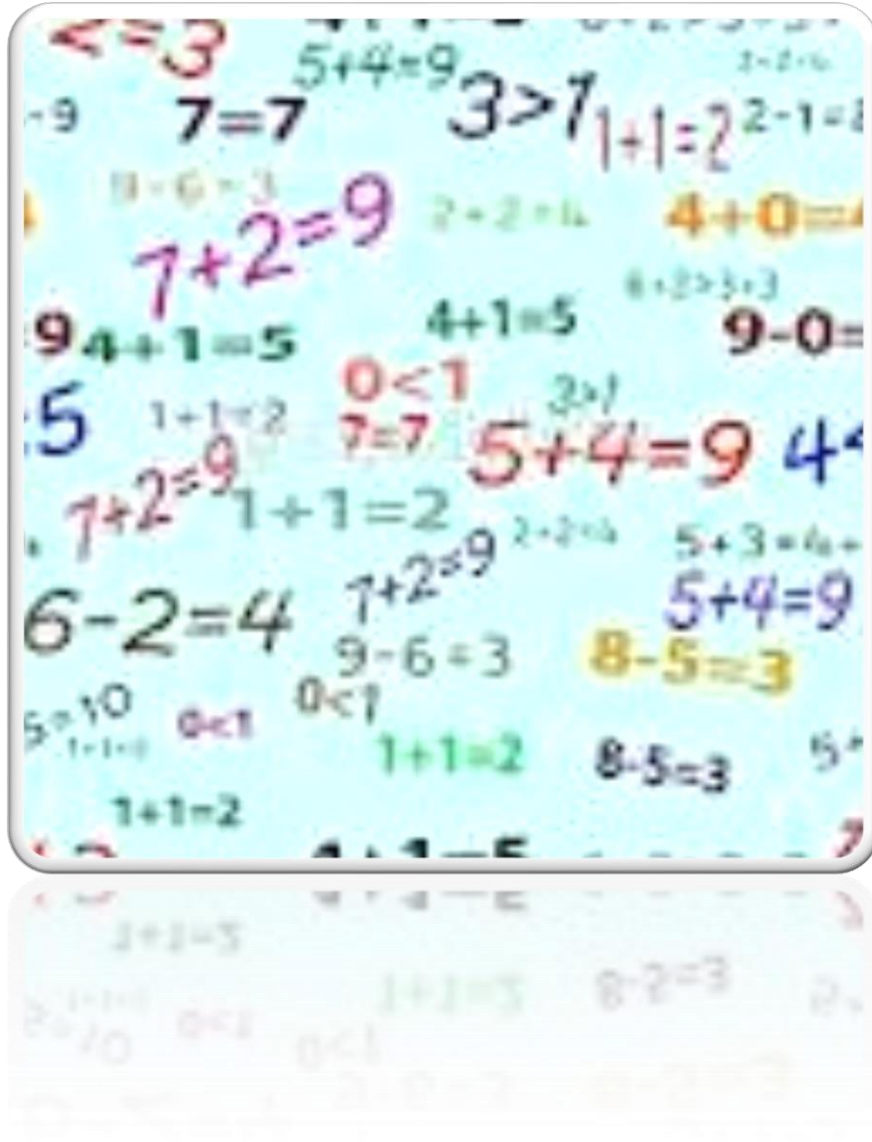 2=3
5+4=9
3>1
-9
7=7
1+1=2
2-1=
9-6=3
7+2=9
2+2=4
4+0=4
6+2>3+3
9
4+1=5
4+1=5
9-0=
0<1
5
1+1<2
7=7
3>1
5+4=9
4<
7+2=9
1+1=2
7+2=9
2+2=4
5+3=4+
6-2=4
5+4=9
9-6=3
8-5=3
5=10
0<1
0<1
1+1=2
8-5=3
5+
1+1=2
4+1=5